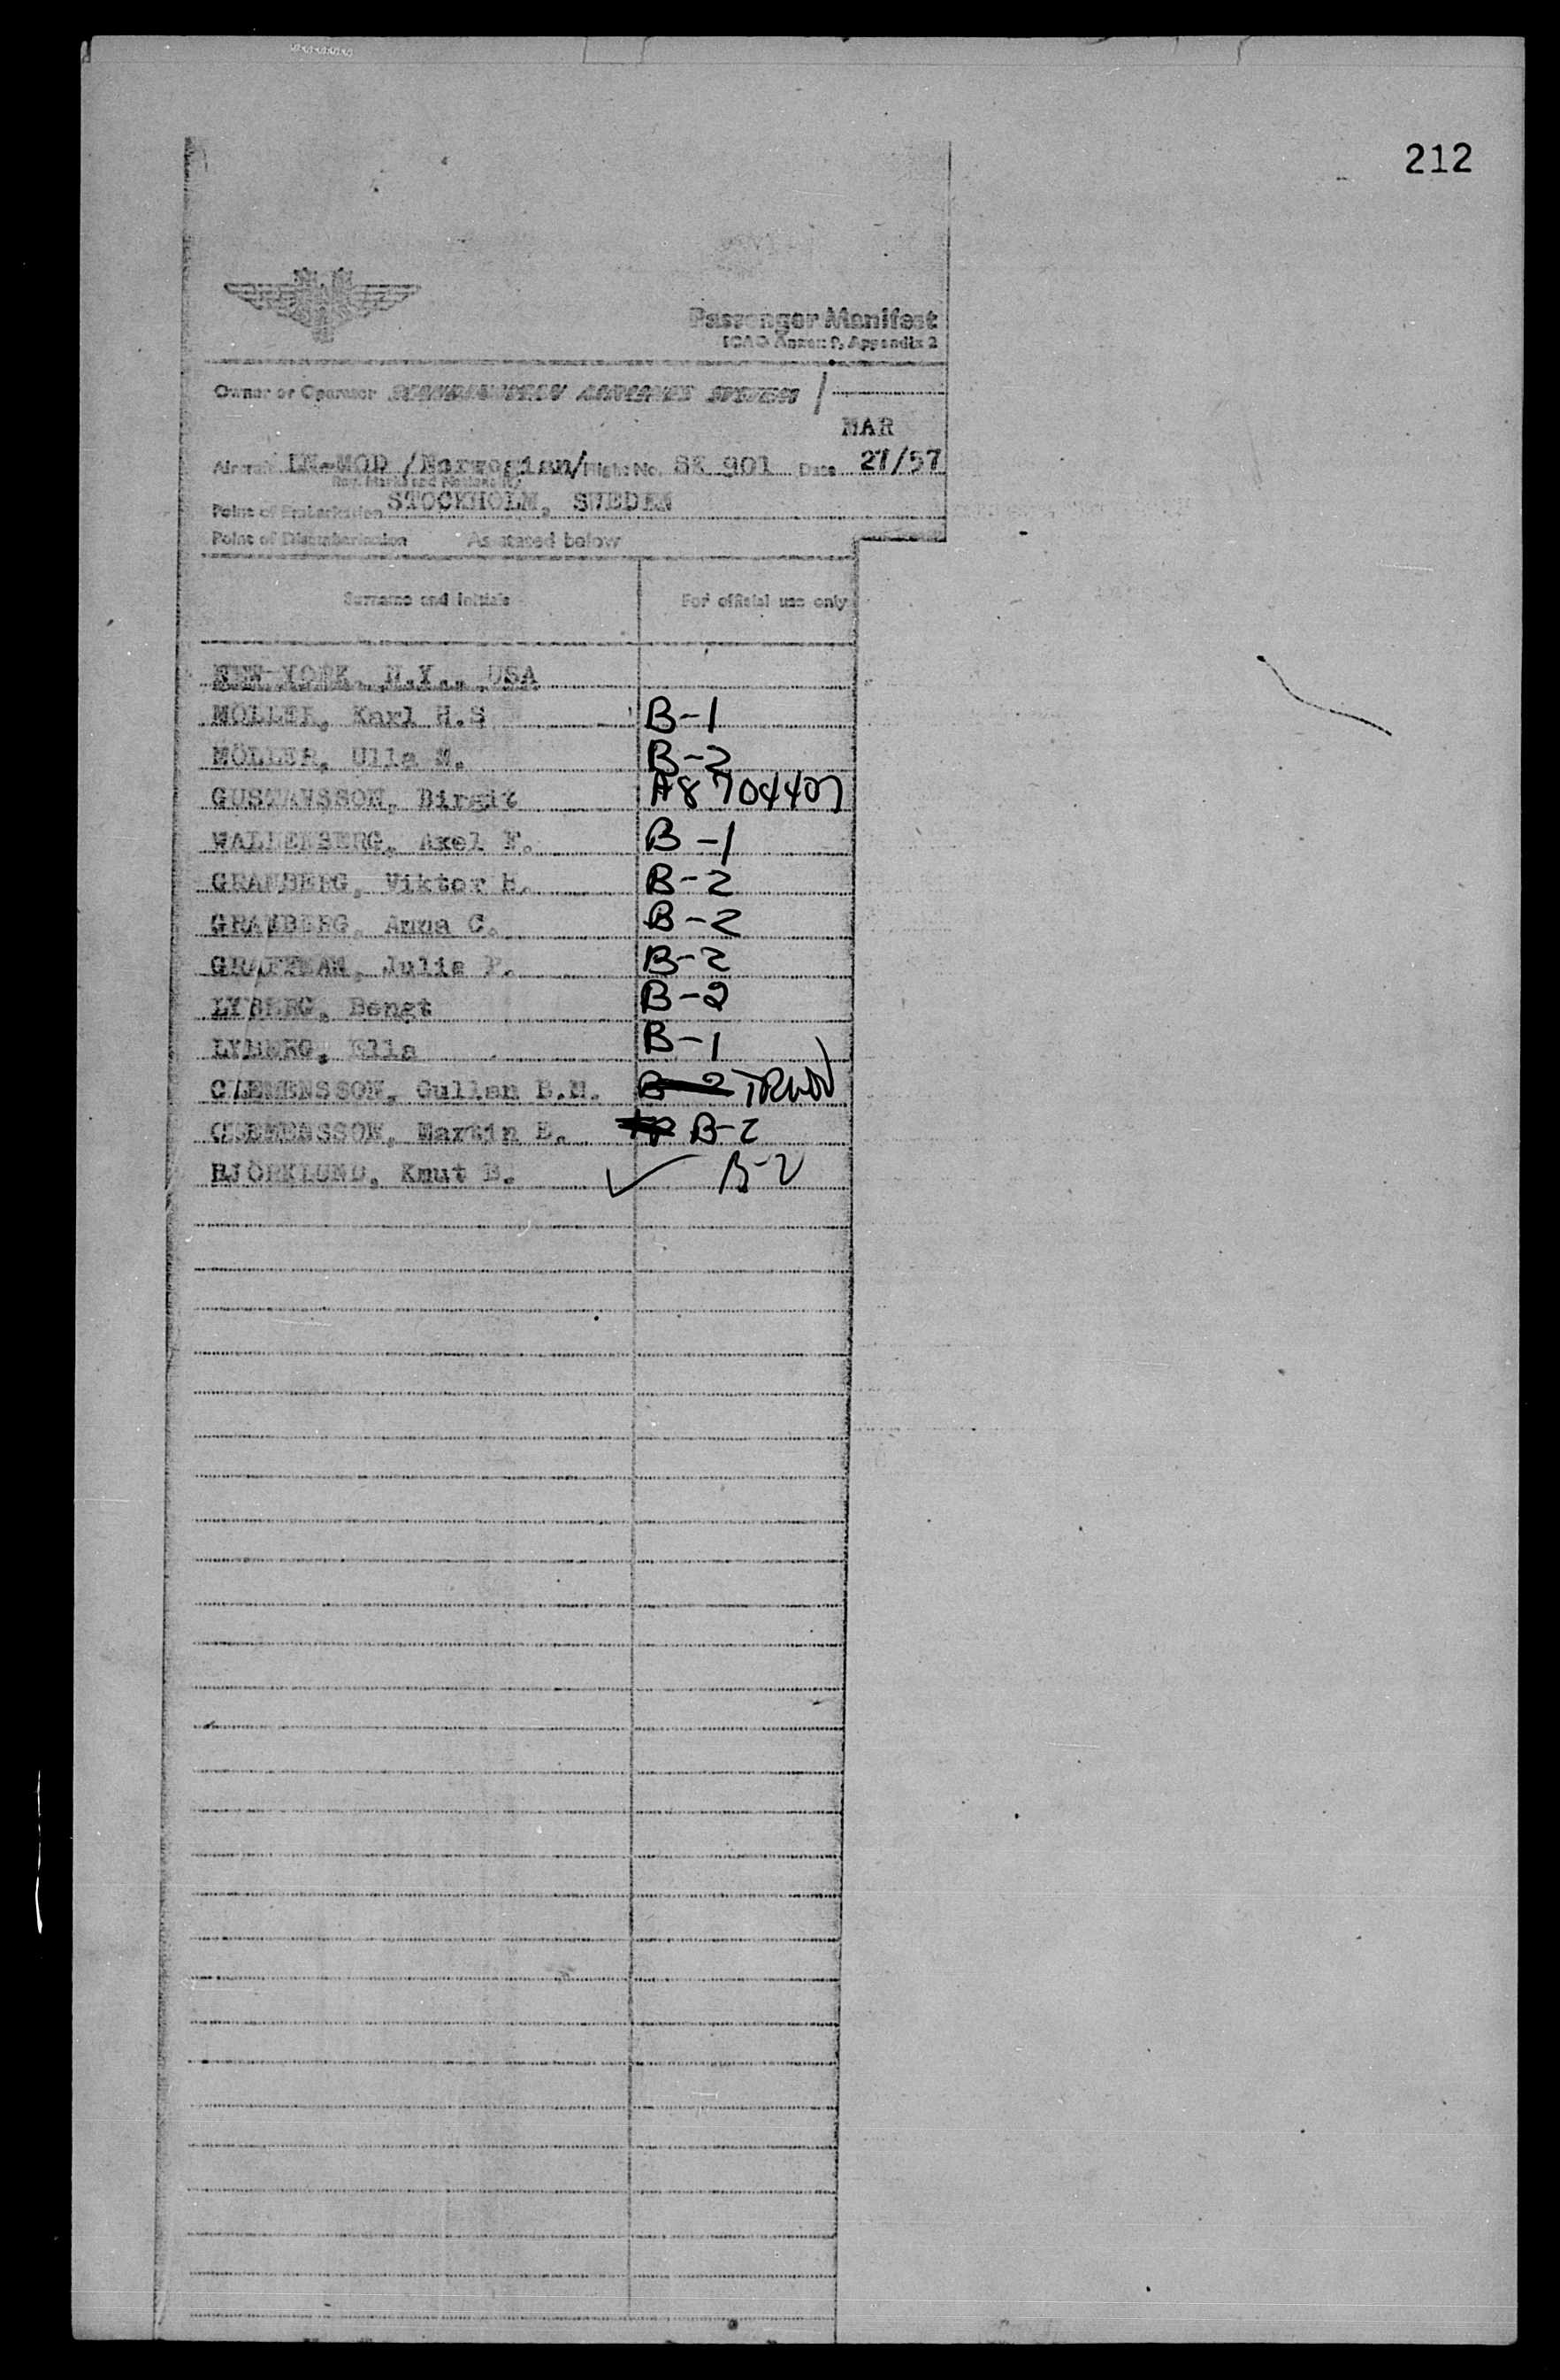 212
Passenger Manifest
ICAO Annex 9, Appendix 2
Owner or Operator SCANDINAVIAN AIRLINES SYSTEM
MAR
Aircraft LN-MOD /Norwegian/ Flight No. SK 901 Date 27/57
Reg. Marks and Nationality
Point of Embarkation STOCKHOLM, SWEDEN
Point of Disembarkation As stated below
Surname and initials For official use only
NEW YORK, N.Y., USA
MÖLLER, Karl H.S B-1
MÖLLER, Ulla M. B-2
GUSTAVSSON, Birgit A8 704407
WALLENBERG, Axel F. B-1
GRANBERG, Viktor H. B-2
GRANBERG, Anna C. B-2
GRAFFMAN, Julia F. B-2
LYBERG, Bengt B-2
LYBERG, Ella B-1
CLEMENSSON, Gullan B.M. B-2
CLEMENSSON, Martin E. B-2
BJÖRKLUND, Knut B. B-2